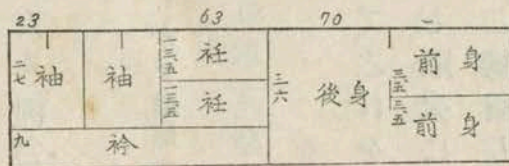 23 63 70 一
二七 袖 袖
一三五 衽
一三五 衽
三六 後身
三五 前身
三五 前身
九 衿